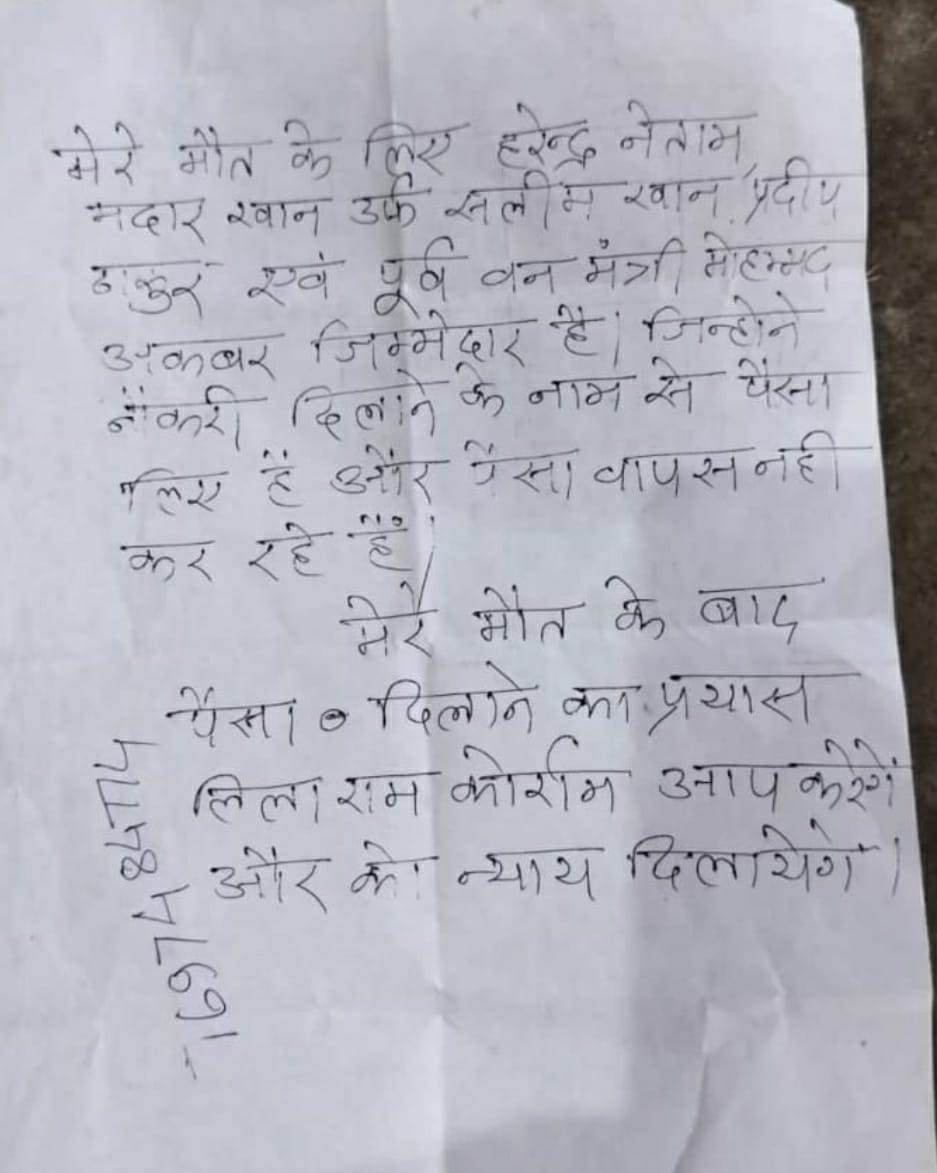 मेरे मौत के लिए हरेन्द्र नेताम,
मदार खान उर्फ सलीम खान, प्रदीप
ठाकुर एवं पूर्व वन मंत्री मोहम्मद
अकबर जिम्मेदार है। जिन्होने
नौकरी दिलाने के नाम से पैसा
लिए हैं और पैसा वापस नही
कर रहे हैं।
मेरे मौत के बाद
पैसा दिलाने का प्रयास
लिला राम कोर्राम आप करेगें
और को न्याय दिलायेगें।